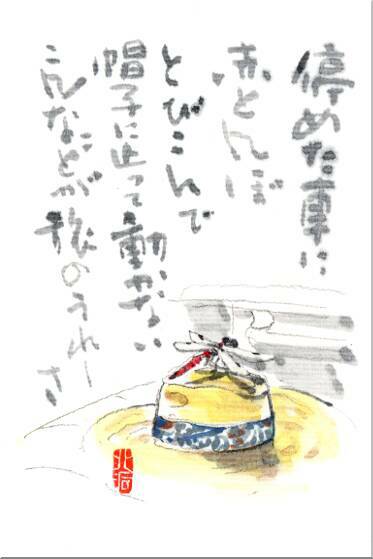 停めた車に
赤とんぼ
とびこんで
帽子に止って動かない
こんなことが旅のうれしさ